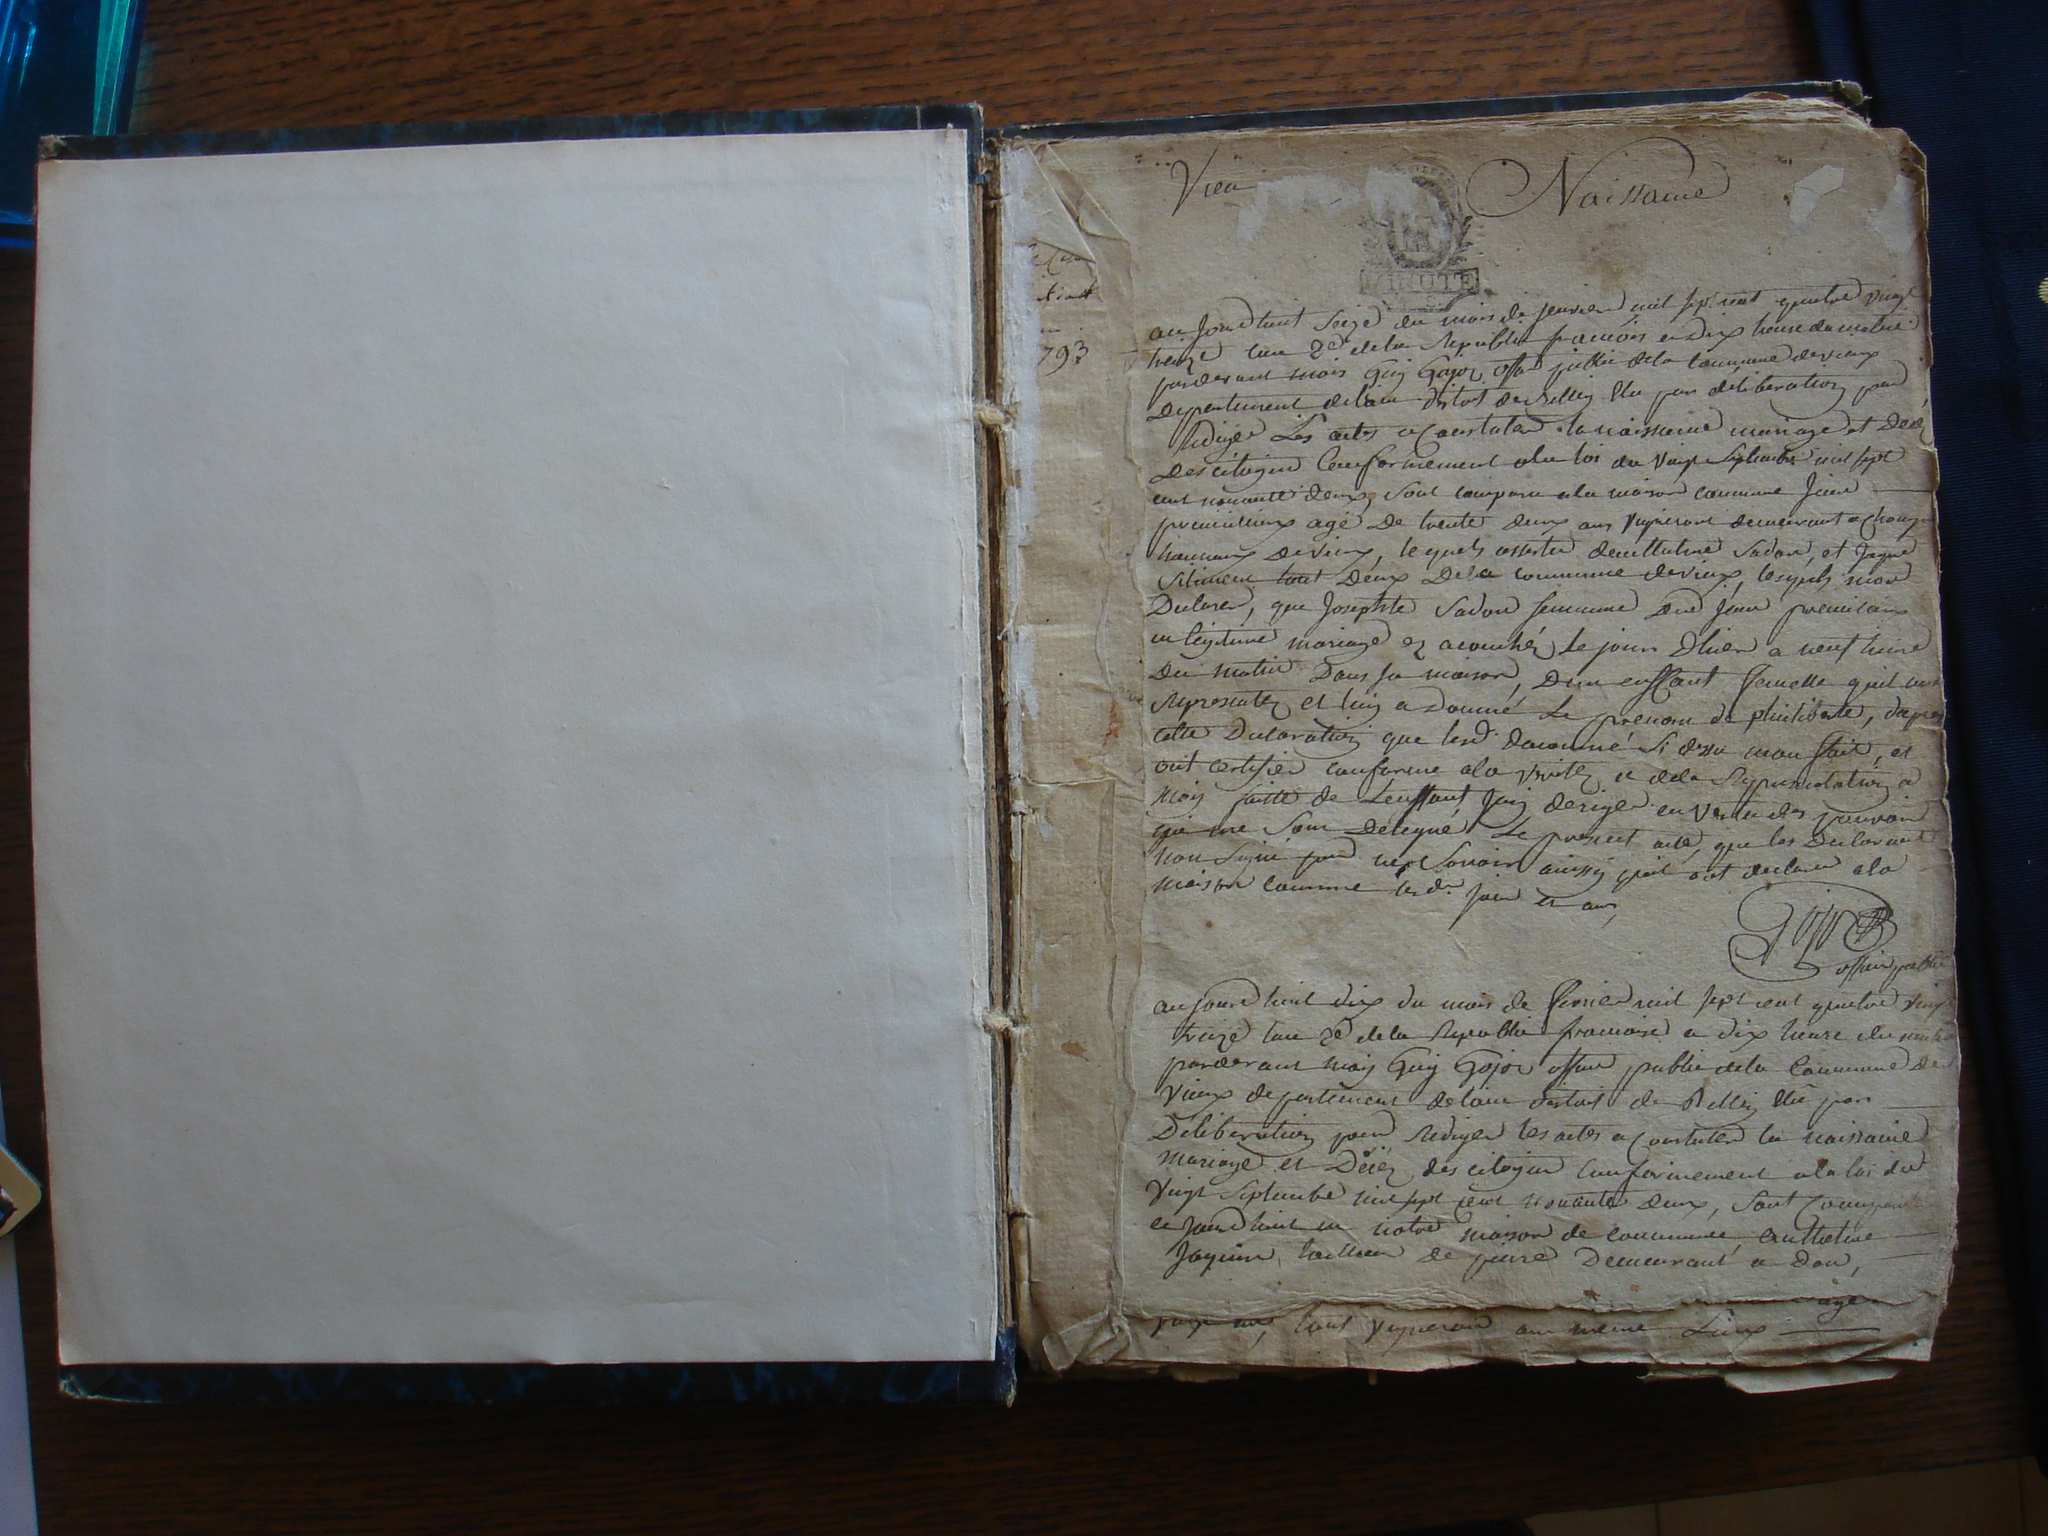 Vieu Naissance
MINUTE
793
aujourdhuit seize du mois de janvier mil sept cent quatre vingt
treize lan 2e de la Republi francois a dix heure du matin
parderant mois Guy Gojoz offier public de la commune de vieux
departement delain distrit de Belley Elu par deliberation pour
Rediger Les actes a Constater la naissance mariage et Décés
Des citoyen Conformement a la loi du Vingt Septembre mil sept
cent nonante deux, sont comparu a la maison commune
agé De trente deux ans Vigneron demeurant a
hammaux de vieux, lequels assisté Sadon, et
tout Deux De la commune de vieux, lesquels mon
Declarer, que Josephte Sadon femme De
en legitime mariage ez acouchéz Le jours Dhier a neuf heure
Du matin Dans sa maison, Dun enffant femelle quil
Representez et luy a Donné Le prenom de philiberte, dapres
cette Declaration que Si dessu mon ffait, et
ont certifier conforme a la veritez et de la Representation a
Moy faitte de Lenffant, Jay deriger en vertu des pouvoir
qui me sont Délégué Le present acte, que les Declarant
non Signé pour ne Savoir aussy quil ont declarer a la
maison commune les dr jour et an,
Gojoz
offier public
aujourdhuit dix du mois de fevrier mil sept cent quatre vingt
treize lan 2e de la Republi francoise a dix heure du matin
parderant moy Guy Gojoz offier public de la Commune De
vieux departement delain distrit de Belley Elu par
Deliberation pour Rediger les actes a Constater la naissance
Mariage et Décéz des citoyen Conformement a la loi du
Vingt Septembre mil sept cent nonante deux, sont Comparu
ce jourdhuit en notre maison de commune,
tailleur de pierre Demeurant a Don,
age
ans, tout vigneron au meme Lieux